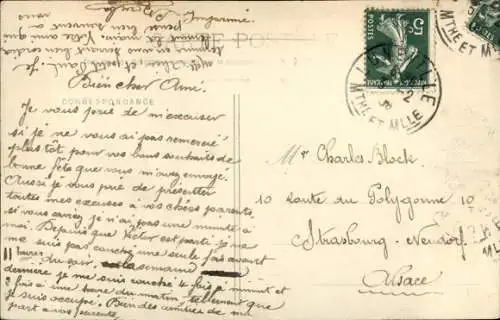 CARTE POSTALE
CORRESPONDANCE
Bien cher Ami.
Je vous prie de m'excuser
si je ne vous ai pas remercié
plus tôt pour vos bons souhaits de
bonne fête que vous m'avez envoyé.
Aussi je vous prie de présenter
toutes mes excuses à vos chers parents,
si vous saviez je n'ai pas une minute à
moi. Depuis que Victor est parti je ne
me suis pas couché une seule fois avant
11 heures du soir. la semaine
dernière je me suis couché 4 fois à minuit et
2 fois à une heure du matin tellement que
je suis occupé. Bien des choses de ma
part à vos parents.
et petit Paul. Je
termine en vous serrant bien
la main. Votre ami qui
pense bien souvent à
vous
5c
POSTES
LIGNE
MTHE ET MLLE
Mr Charles Block.
10 route du Polygone 10
Strasbourg - Neudorf
Alsace